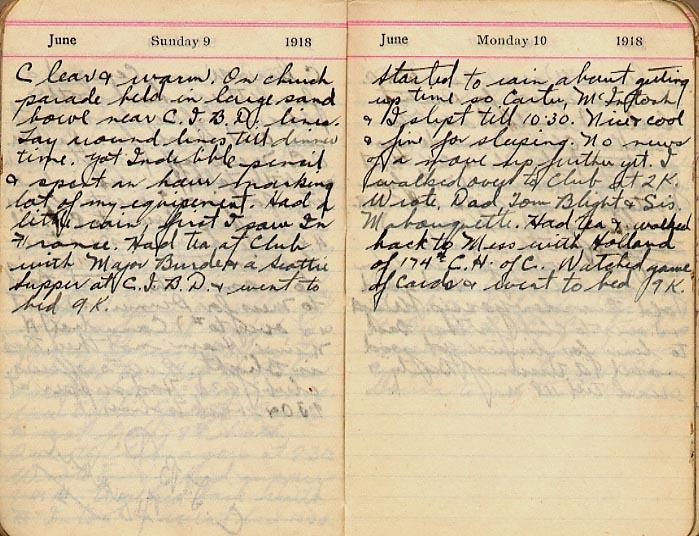 June Sunday 9 1918
Clear & warm. On church
parade held in large sand
bowl near C.I.B.D. lines.
Lay round lines till dinner
time. Got Indelible pencil
& spent an hour marking
lot of my equipment. Had a
little rain, first I saw in
France. Had tea at Club
with Major Burde & a Scottie
Supper at C.I.B.D. & went to
bed 9K.
June Monday 10 1918
Started to rain about getting
up time so Carter, McIntosh
& I slept till 10:30. Nice & cool
& fine for sleeping. No news
of a move up further yet. I
walked over to Club at 2K.
Wrote Dad, Tom Blight & Sis.
Had tea & walked
back to Mess with Holland
of 174th C.H. of C. Watched game
of Cards & went to bed 9K.